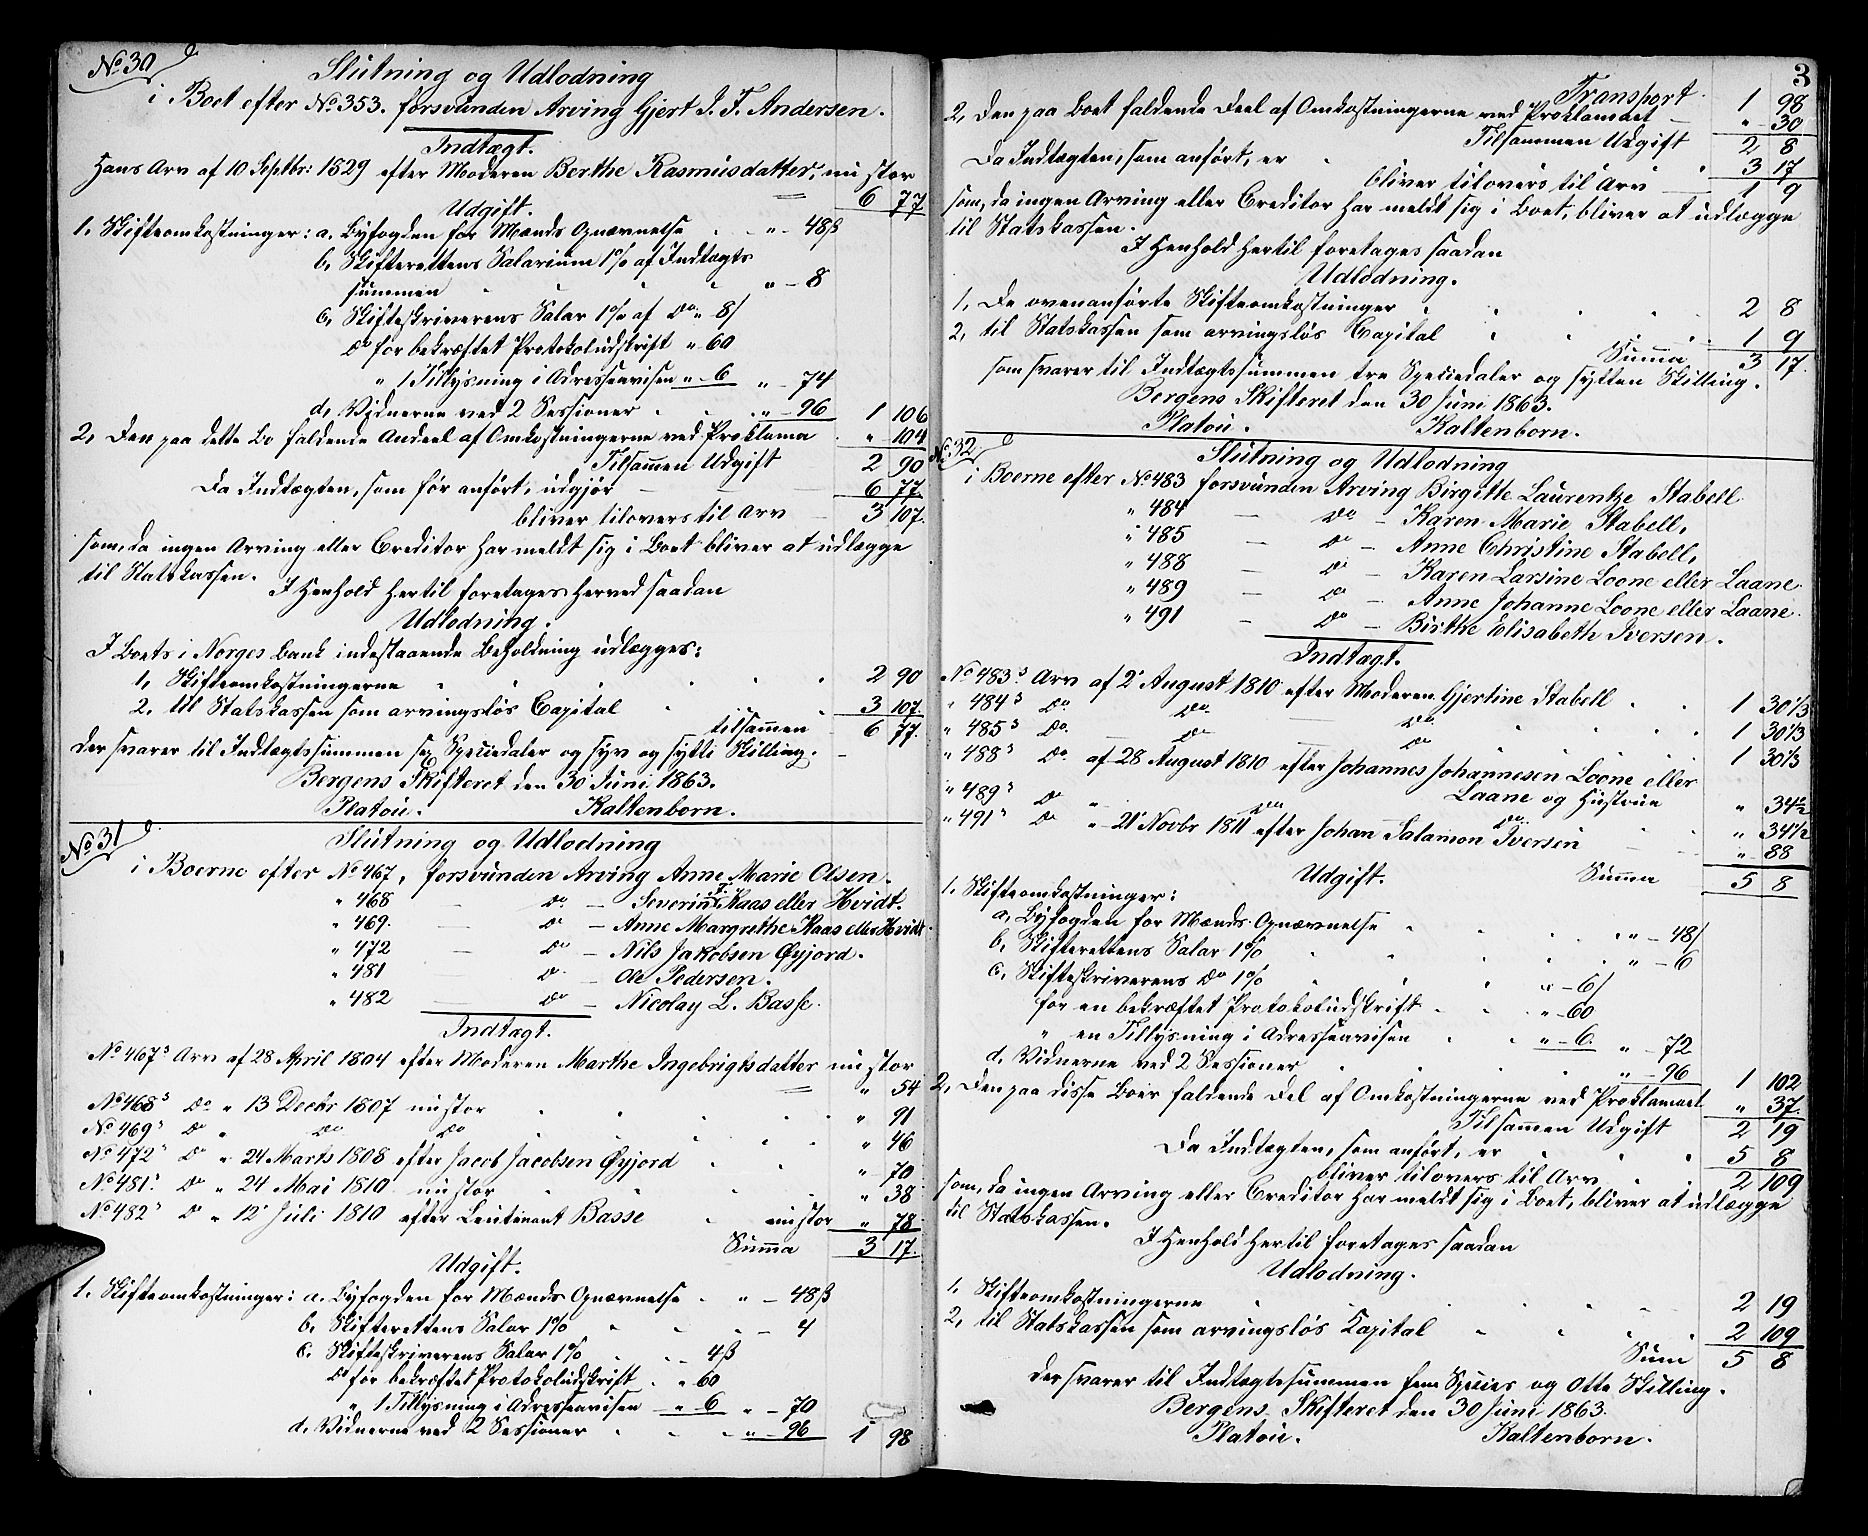 No 30
Slutning og Udlodning
i Boet efter No 353. forsvunden Arving Gjert J. F. Andersen.
Indtægt.
Hans Arv af 10 Septbr: 1829 efter Moderen Berthe Rasmusdatter, nu stor
6 77
Udgift.
1. Skifteomkostninger: a. Byfogden for Mænds Opnævnelse " - 48ß
b. Skifterettens Salarium 1% af Indtægts
summen " - 8
c. Skifteskriverens Salar 1% af Do " 8/
Do for bekræftet Protokoludskrift " 60
" 1 Tillysning i Adresseavisen " - 6 " - 74
d. Vidnerne ved 2 Sessioner " - 96 1 106
2, Den paa dette Bo faldende Andeel af Omkostningerne ved Proklama " 104
Tilsammen Udgift 2 90
Da Indtægten, som før anført, udgjør 6 77.
bliver tilovers til Arv 3 107.
som, da ingen Arving eller Creditor har meldt sig i Boet bliver at udlægge
til Statskassen.
I Henhold hertil foretages herved saadan
Udlodning.
I Boets i Norges bank indestaaende Beholdning udlægges:
1, Skifteomkostningerne 2 90
2, til Statskassen som arvingsløs Capital 3 107.
tilsammen 6 77.
der svarer til Indtægtssummen sex Speciedaler og syv og sytti Skilling.
Bergens Skifteret den 30 Juni 1863.
Platou. Kaltenborn.
No 31
Slutning og Udlodning
i Boerne efter No 467, forsvunden Arving Anne Marie Olsen.
" 468 — Do — Severin T. Kaas eller Hvidt.
" 469. — Do — Anne Margrethe Kaas eller Hvidt.
" 472 — Do — Nils Jakobsen Øyjord.
" 481 — Do — Ole Pedersen.
" 482 — Do — Nicolay L. Basse.
Indtægt.
No 467s Arv af 28 April 1804 efter Moderen Marthe Ingebrigtsdatter nu stor
" 54
No 468s Do " 13 Decbr 1807 nu stor " 91
No 469s Do " Do Do " 46
No 472s Do " 24 Marts 1808 efter Jacob Jacobsen Øyjord " 70
No 481s Do " 24 Mai 1810 nu stor " 38
No 482s Do " 12 Juli 1810 efter Leutinant Basse nu stor " 78.
Summa 3 17.
Udgift.
1. Skifteomkostninger: a. Byfogden for Mænds Opnævnelse " - 48ß
b. Skifterettens Salar 1% " - 4
c. Skifteskriverens Salar 1% " 4ß
Do for bekræftet Protokoludskrift " 60
" 1 Tillysning i Adresseavisen " 6 " - 70
d. Vidnerne ved 2 Sessioner " - 96 1 98
3
Transport 1 98
2, Den paa Boet faldende Deel af Omkostningerne ved Proklamaet " 30
Tilsammen Udgift 2 8
Da Indtægten, som anført, er 3 17
bliver tilovers til Arv 1 9
som, da ingen Arving eller Creditor har meldt sig i Boet, bliver at udlægge
til Statskassen.
I Henhold hertil foretages saadan
Udlodning.
1, De ovenanførte Skifteomkostninger 2 8
2, til Statskassen som arvingsløs Capital 1 9
Summa 3 17.
som svarer til Indtægtssummen tre Speciedaler og sytten Skilling.
Bergens Skifteret den 30 Juni 1863.
Platou. Kaltenborn.
No 32
Slutning og Udlodning
i Boerne efter No 483 forsvunden Arving Birgitte Laurentze Stabell
" 484 — Do — Karen Marie Stabell,
" 485 — Do — Anne Christine Stabell,
" 488 — Do — Karen Larsine Loone eller Laane.
" 489 — Do — Anne Johanne Loone eller Laane.
" 491 — Do — Birthe Elisabeth Iversen.
Indtægt.
No 483s Arv af 2 August 1810 efter Moderen Gjertine Stabell 1 30 1/3
" 484s Do Do Do 1 30 1/3
" 485s Do. Do Do 1 30 1/3
" 488s Do af 28 August 1810 efter Johannes Johannesen Loone eller
Laane og Hustrue " 34 1/2
" 489s Do " Do Do " 34 1/2
" 491s Do " 21 Novbr 1811 efter Johan Salamon Iversen " 88
Summa 5 8
Udgift.
1. Skifteomkostninger:
a. Byfogden for Mænds Opnævnelse " - 48/
b. Skifterettens Salar 1% " - 6
c. Skifteskriverens Do 1% " - 6/
for en bekræftet Protokoludskrift " - 60
" en Tillysning i Adresseavisen " - 6. " - 72
d. Vidnerne ved 2 Sessioner " - 96 1 102
2, Den paa disse Boer faldende Del af Omkostningerne ved Proklamaet " 37.
Tilsammen Udgift 2 19
Da Indtægten, som anført, er 5 8
bliver tilovers til Arv 2 109
som, da ingen Arving eller Creditor har meldt sig i Boet, bliver at udlægge
til Statskassen.
I Henhold hertil foretages saadan
Udlodning.
1. Skifteomkostningerne 2 19
2, til Statskassen som arvingsløs Kapital 2 109
Sum 5 8
der svarer til Indtægtssummen fem Species og otte Skilling.
Bergens Skifteret den 30 Juni 1863.
Platou. Kaltenborn.